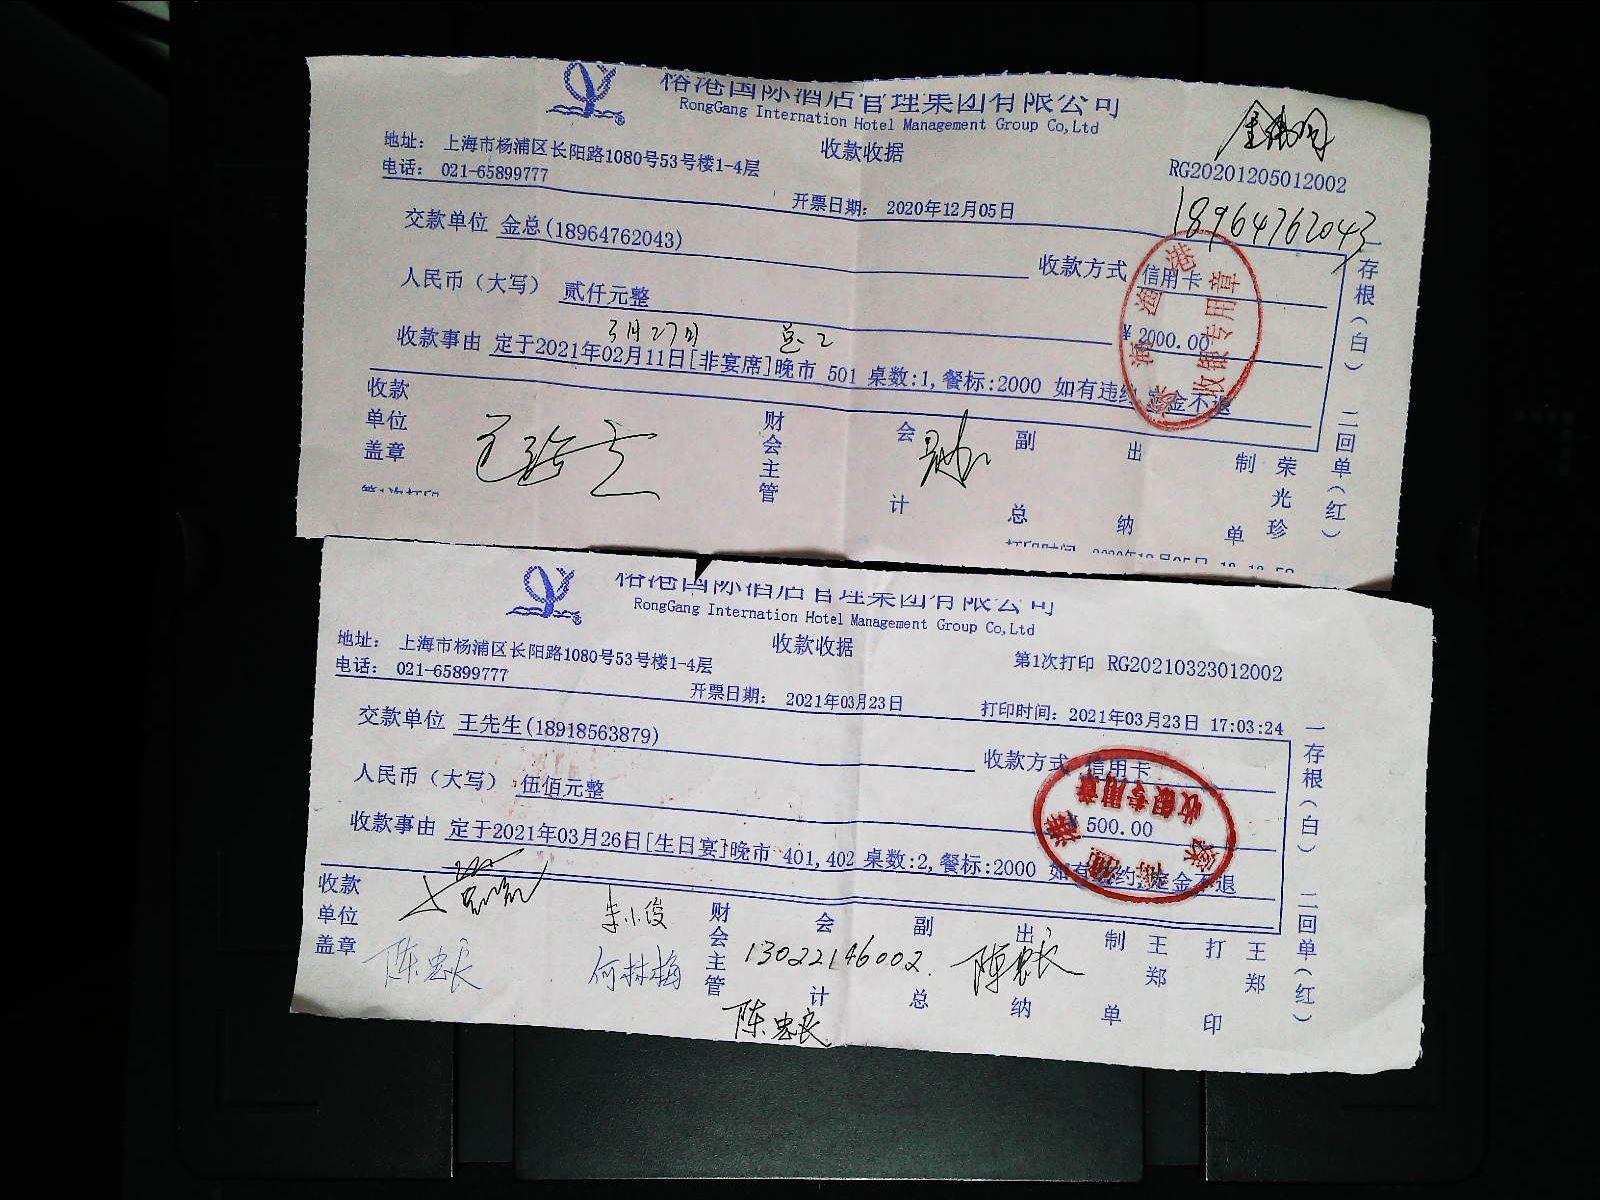 榕港国际酒店管理集团有限公司
RongGang Internation Hotel Management Group Co,Ltd
地址： 上海市杨浦区长阳路1080号53号楼1-4层
收款收据
电话： 021-65899777
RG20201205012002
开票日期： 2020年12月05日
18964762043
交款单位 金总(18964762043)
收款方式 信用卡
人民币（大写） 贰仟元整
¥ 2000.00
3月27日
收款事由 定于2021年02月11日[非宴席]晚市 501 桌数:1,餐标:2000 如有违约,定金不退
收银专用章
收款单位盖章
财会主管
会计
副总
出纳
制单
荣光珍
一存根（白） 二回单（红）
第1次打印
榕港国际酒店管理集团有限公司
RongGang Internation Hotel Management Group Co,Ltd
地址： 上海市杨浦区长阳路1080号53号楼1-4层
收款收据
电话： 021-65899777
第1次打印 RG20210323012002
开票日期： 2021年03月23日
打印时间：2021年03月23日 17:03:24
交款单位 王先生(18918563879)
收款方式 信用卡
人民币（大写） 伍佰元整
¥ 500.00
收款事由 定于2021年03月26日[生日宴]晚市 401,402 桌数:2,餐标:2000 如有违约,定金不退
收银专用章
收款单位盖章
陈忠良
李小俊
何林梅
财会主管
会计
13022146002.
副总
出纳
陈忠良
制单
王郑
打印
王郑
陈忠良
一存根（白） 二回单（红）